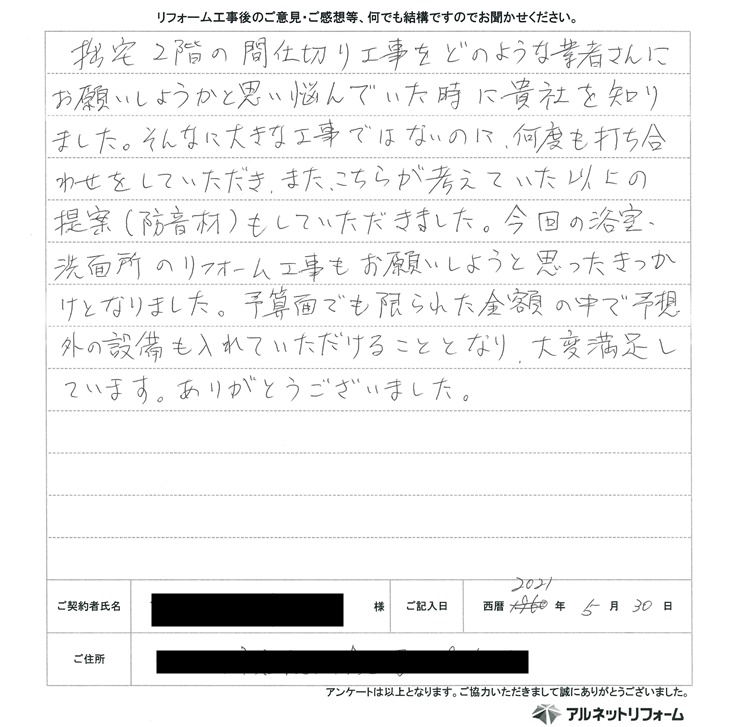 リフォーム工事後のご意見・ご感想等、何でも結構ですのでお聞かせください。
拙宅2階の間仕切り工事をどのような業者さんに
お願いしようかと思い悩んでいた時に貴社を知り
ました。そんなに大きな工事ではないのに、何度も打ち合
わせをしていただき、また、こちらが考えていた以上の
提案(防音材)もしていただきました。今回の浴室、
洗面所のリフォーム工事もお願いしようと思ったきっか
けとなりました。予算面でも限られた金額の中で予想
外の設備も入れていただけることとなり、大変満足し
ています。ありがとうございました。
ご契約者氏名 様 ご記入日 西暦 2021 年 5 月 30 日
ご住所
アンケートは以上となります。ご協力いただきまして誠にありがとうございました。
アルネットリフォーム